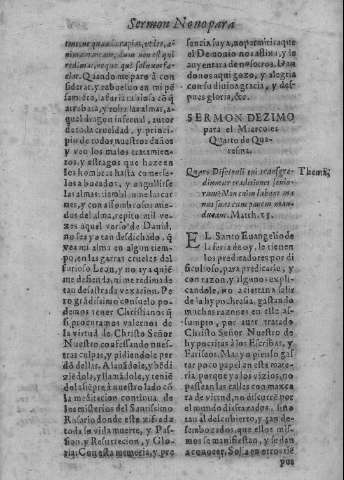 Sermon Nono para
temerme quando rapiat, velut, a-
nimam meam, dum non est qui
redimat, neque qui saluum fa-
ciat. Quando me paro à con
siderar, y rebueluo en mi pẽ
samẽto, la furia rabiosa cõ q̃
arrebata, y roba las almas, a-
quel dragon infernal, autor
de toda crueldad, y princi-
pio de todos nuestros daños
y veo los malos tratamien-
tos, y estragos que haze en
los hombres hasta comerse-
los à bocados, y engullirse
las almas sin hallarse hartar
mas, y con assombrosos mie-
dos del alma, repito mil ve-
zes aquel verso de Dauid,
no sea yo tan desdichado, q̃
vea mi alma en algun tiem-
po, en las garras crueles del
furioso Leon, y no aya quiẽ
me defienda, ni me redima de
tan desastrada vexacion. Pe
ro grãdissimo consuelo po-
demos tener Christianos q̃
si procuramos valernos de
la virtud de Christo Señor
Nuestro confessando nues-
tras culpas, y pidiendole per
dõ dellas. Alabãdole, y bẽdi
ziẽdole, y llamãdole, y teniẽ
do siẽpre à nuestro lado cõ
la meditacion continua de
los misterios del Santissimo
Rosario donde està cifrada to
da su vida muerte, y Pas-
sion, y Resurrecion, y Glo-
ria. Con esta memoria, y pre
sencia suya, no permitira que
el Demonio nos aflixa, y lo
auyentara de nosotros. Dan
donos aqui gozo, y alegria
con su diuina gracia, y des-
pues gloria, &c.
SERMON DEZIMO
para el Miercoles
Quarto de Qua-
resma.
Quare Discipuli tui transgre- Thema,
diuntur traditiones senio-
rum? Non enim lauant ma
nus suas cum panem man-
ducant. Matth. 15.
EL Santo Euangelio de
la feria de oy, le tienen
los predicadores por di
ficultoso, para predicarle, y
con razon, y algunos expli-
candole, no aciertan a salir
de la hypochresia, gastando
muchas razones en ello as-
sumpto, por auer tratado
Christo Señor Nuestro de
hypocritas à los Escribas, y
Fariseos. Mas yo pienso gas
tar poco papel en esta ma-
teria, porque ya los vizios, no
passean las calles con maxca
ra de virtud, no discurrẽ por
el mundo disfrazados, sino
tan al descubierto, y tan de-
sembozados, que ellos mis-
mos se manifiestan, y se dan
à conocer. Sola en otro tiẽ
pos